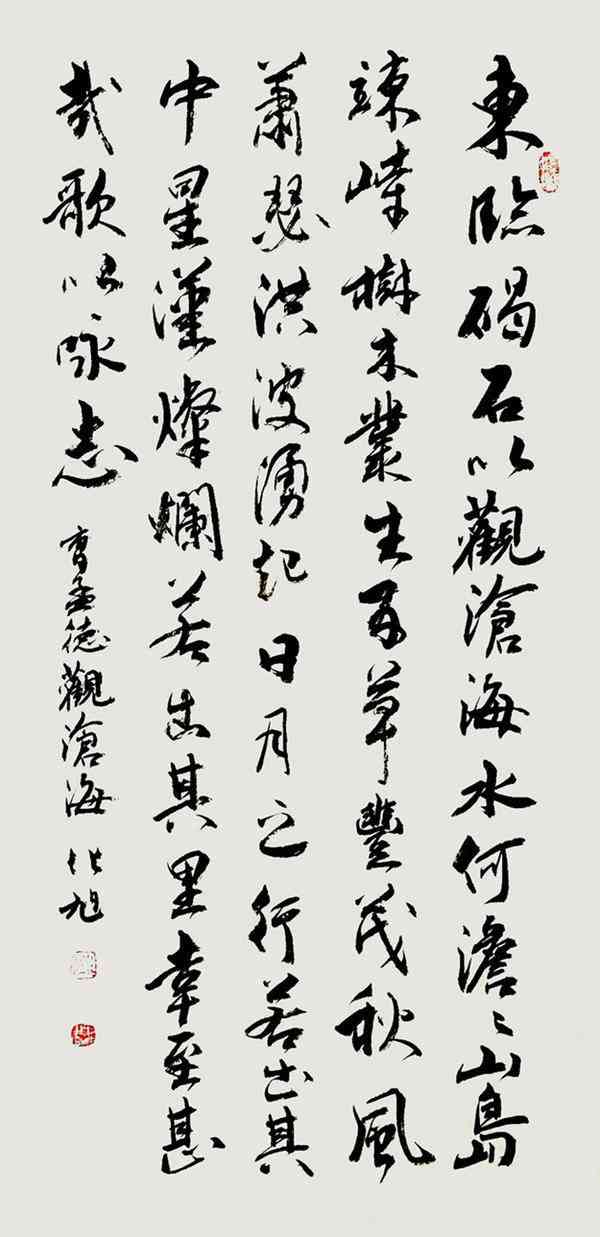 東臨碣石以觀滄海水何澹〻山島
竦峙樹木叢生百草豐茂秋風
蕭瑟洪波湧起日月之行若出其
中星漢燦爛若出其里幸至甚
哉歌以咏志 曹孟德觀滄海 旭